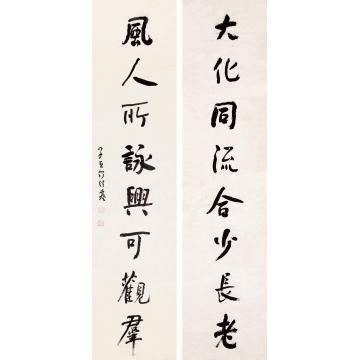 大化同流合少長老
風人所詠興可觀羣